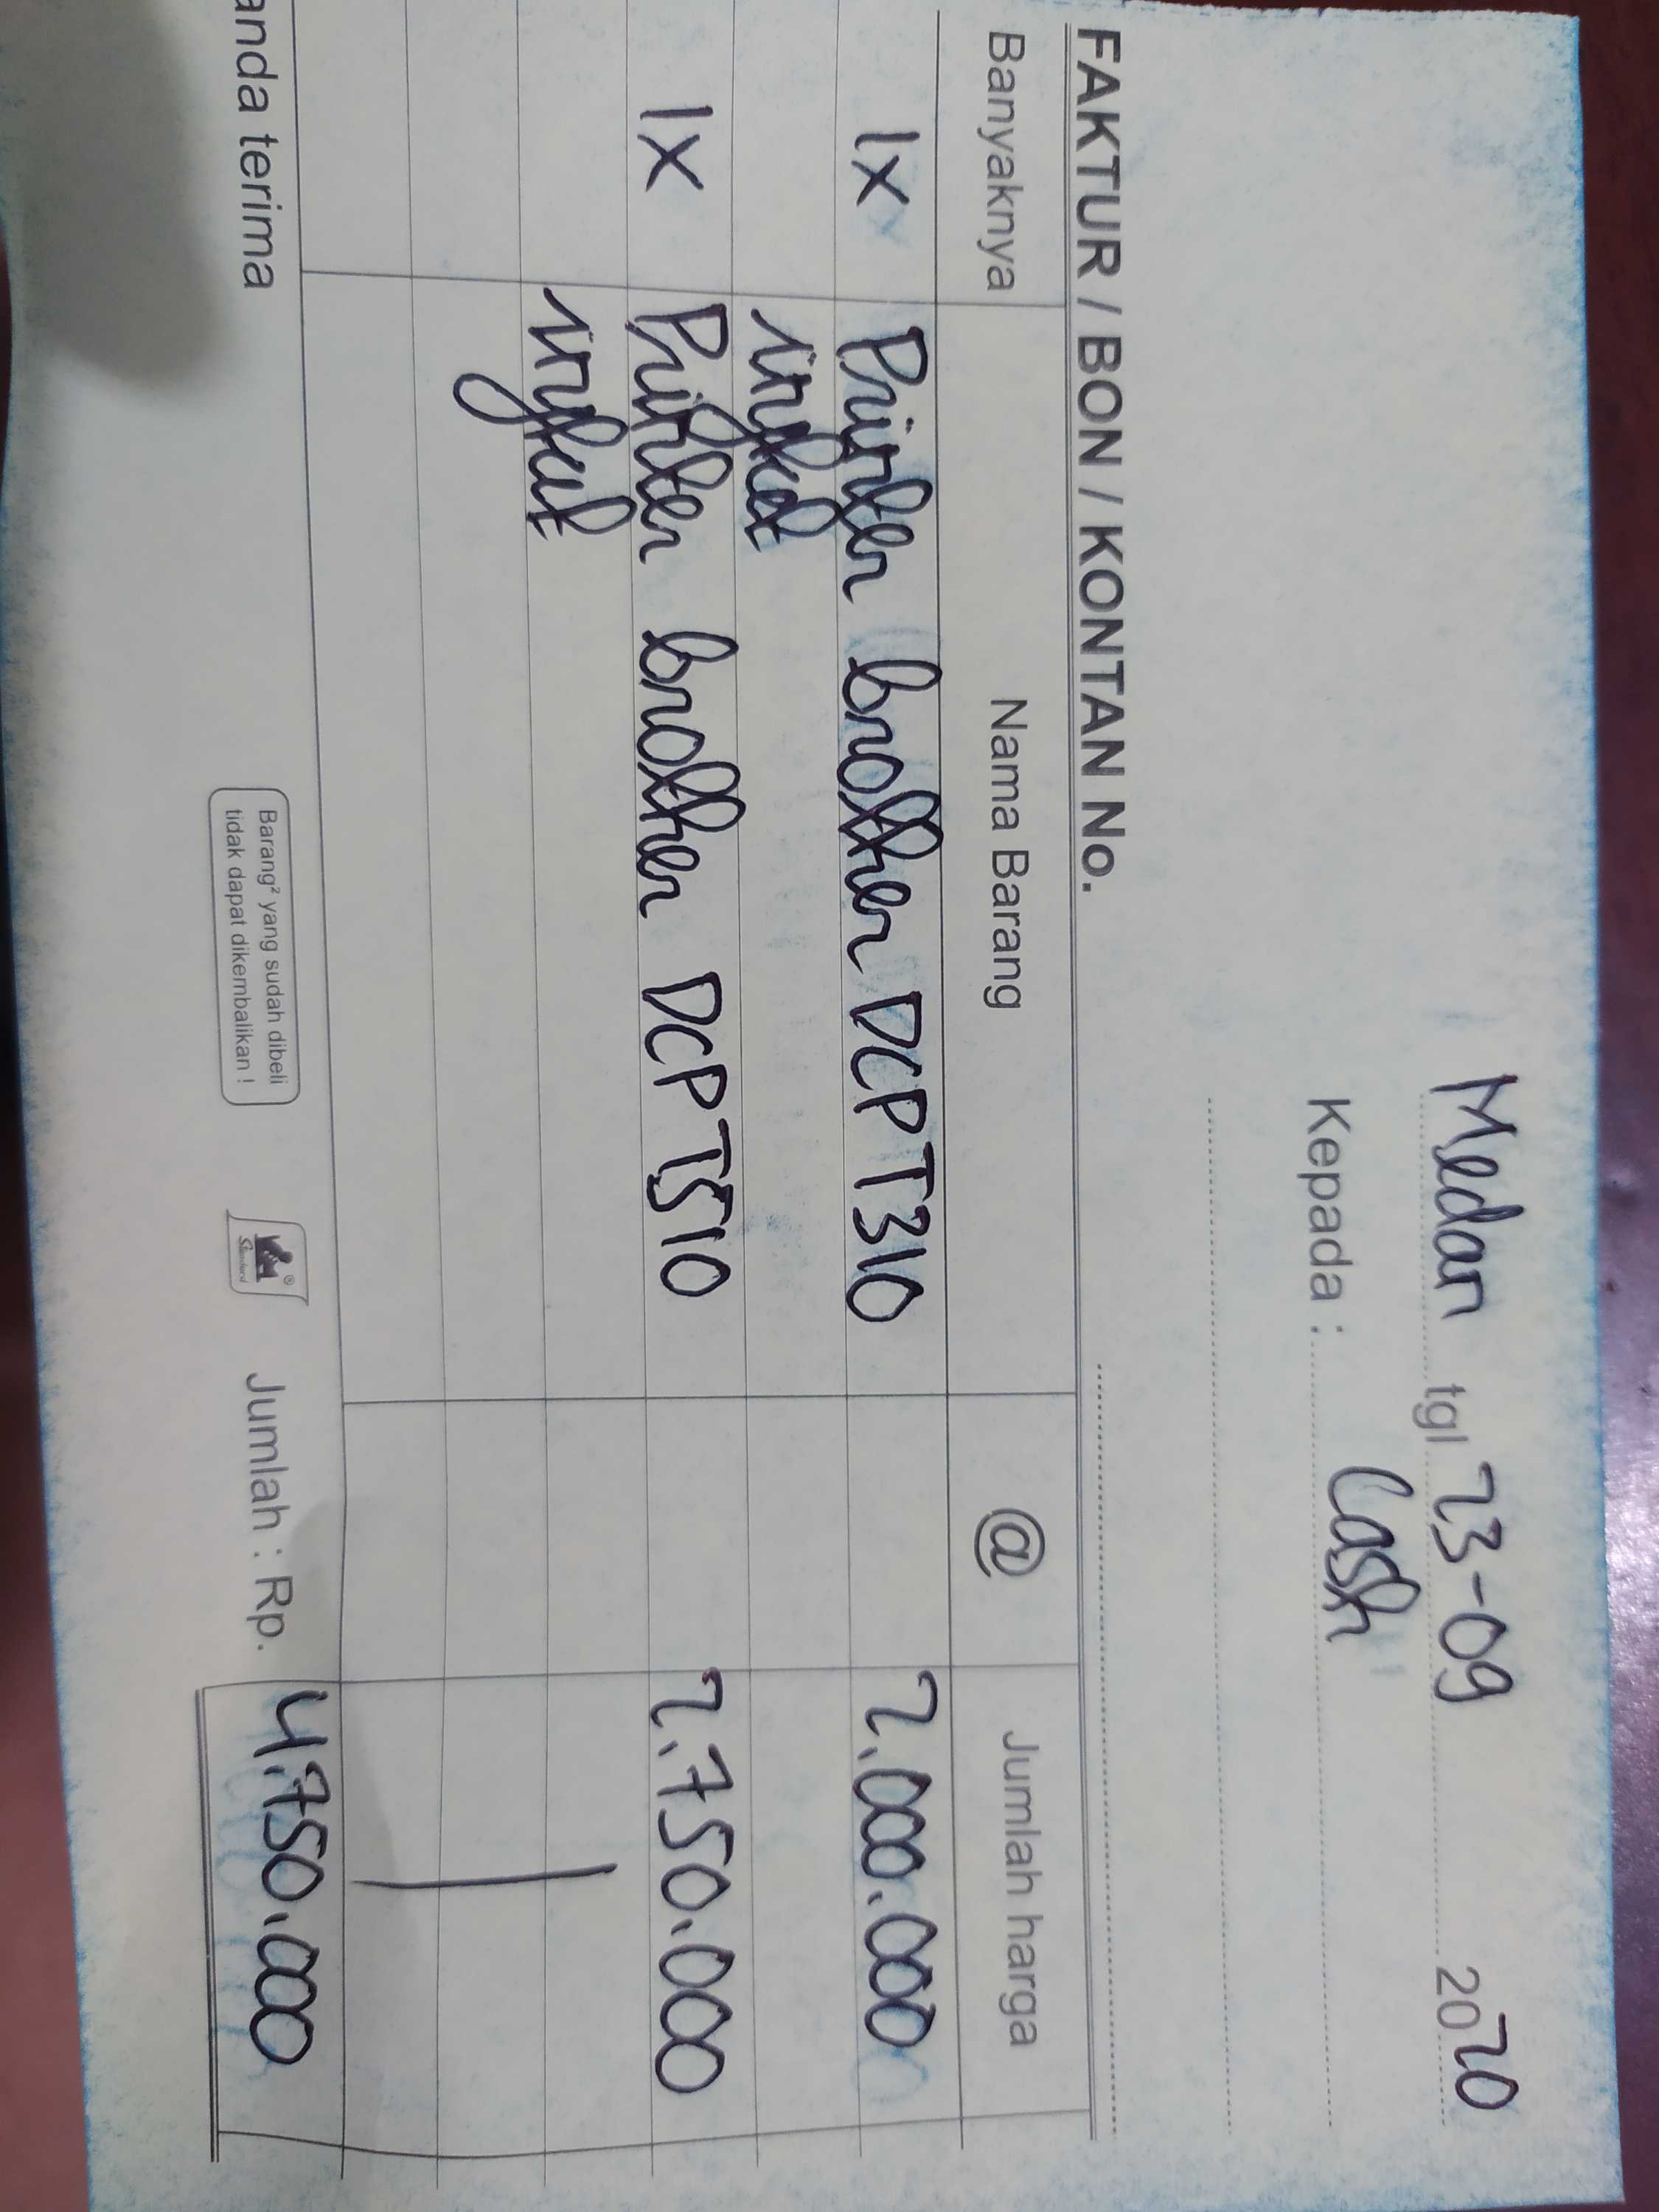 Medan tgl. 23-09 2020
Kepada : Cash
FAKTUR / BON / KONTAN No.
Banyaknya Nama Barang @ Jumlah harga
1x Printer brother DCP T310 2.000.000
inkjet
1x Printer brother DCP T510 2.750.000
inkjet
anda terima
Barang² yang sudah dibeli
tidak dapat dikembalikan !
Jumlah : Rp. 4.750.000